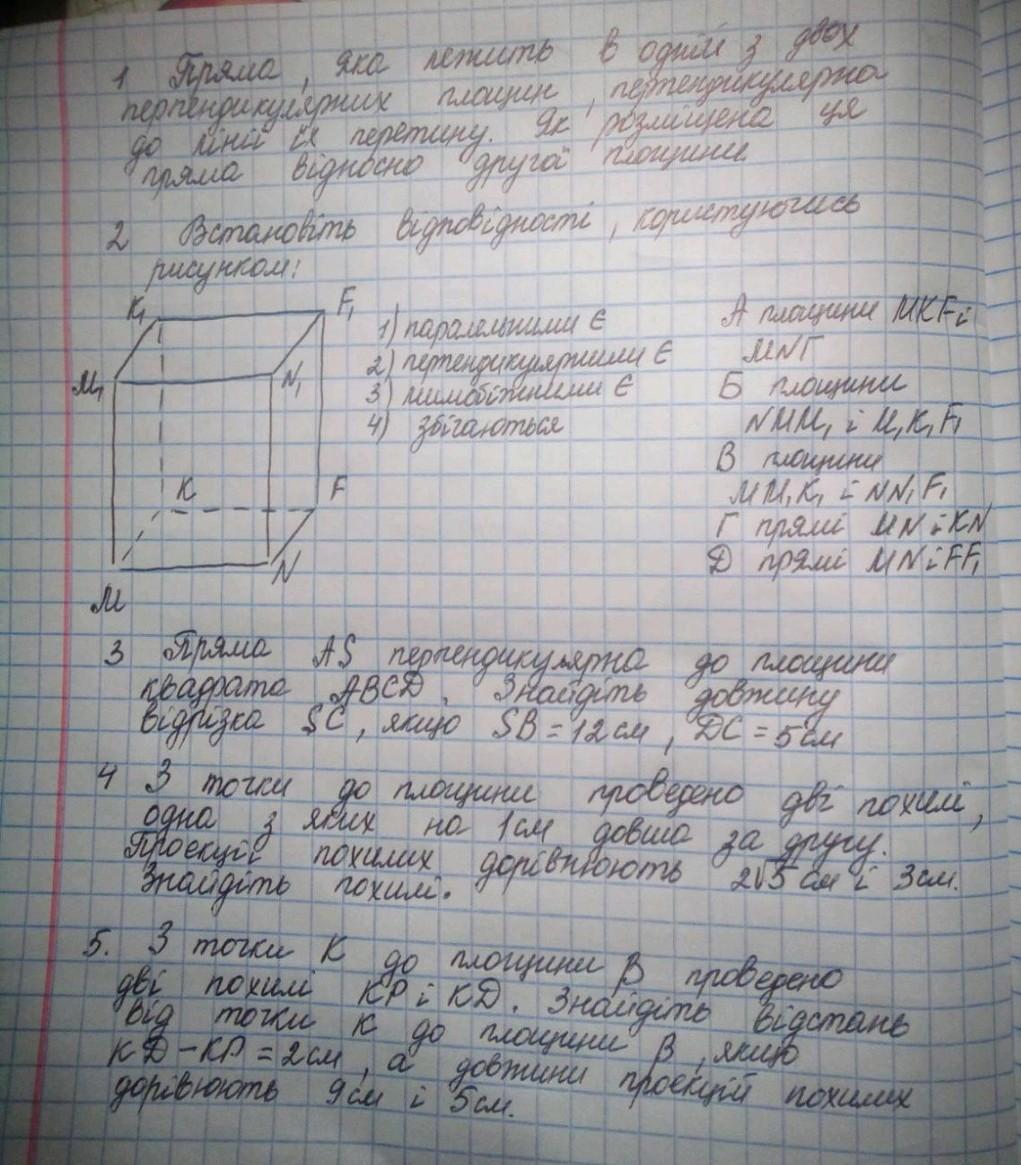 1 Пряма, яка лежить в одній з двох
перпендикулярних площин, перпендикулярна
до лінії їх перетину. Як розміщена ця
пряма відносно другої площини
2 Встановіть відповідності, користуючись
рисунком:
K₁ F₁
M₁ N₁
K F
M N
1) паралельними є
2) перпендикулярними є
3) мимобіжними є
4) збігаються
А площини MKF і
MNF
Б площини
NMM₁ і M₁K₁F₁
В площини
MM₁K₁ і NN₁F₁
Г прямі MN і KN
Д прямі MN і FF₁
3 Пряма AS перпендикулярна до площини
квадрата ABCD. Знайдіть довжину
відрізка SC, якщо SB = 12 см, DC = 5 см
4 З точки до площини проведено дві похилі,
одна з яких на 1 см довша за другу.
Проекції похилих дорівнюють 2√5 см і 3 см.
Знайдіть похилі.
5. З точки K до площини β проведено
дві похилі KP і KD. Знайдіть відстань
від точки K до площини β, якщо
KD - KP = 2 см, а довжини проекцій похилих
дорівюють 9 см і 5 см.